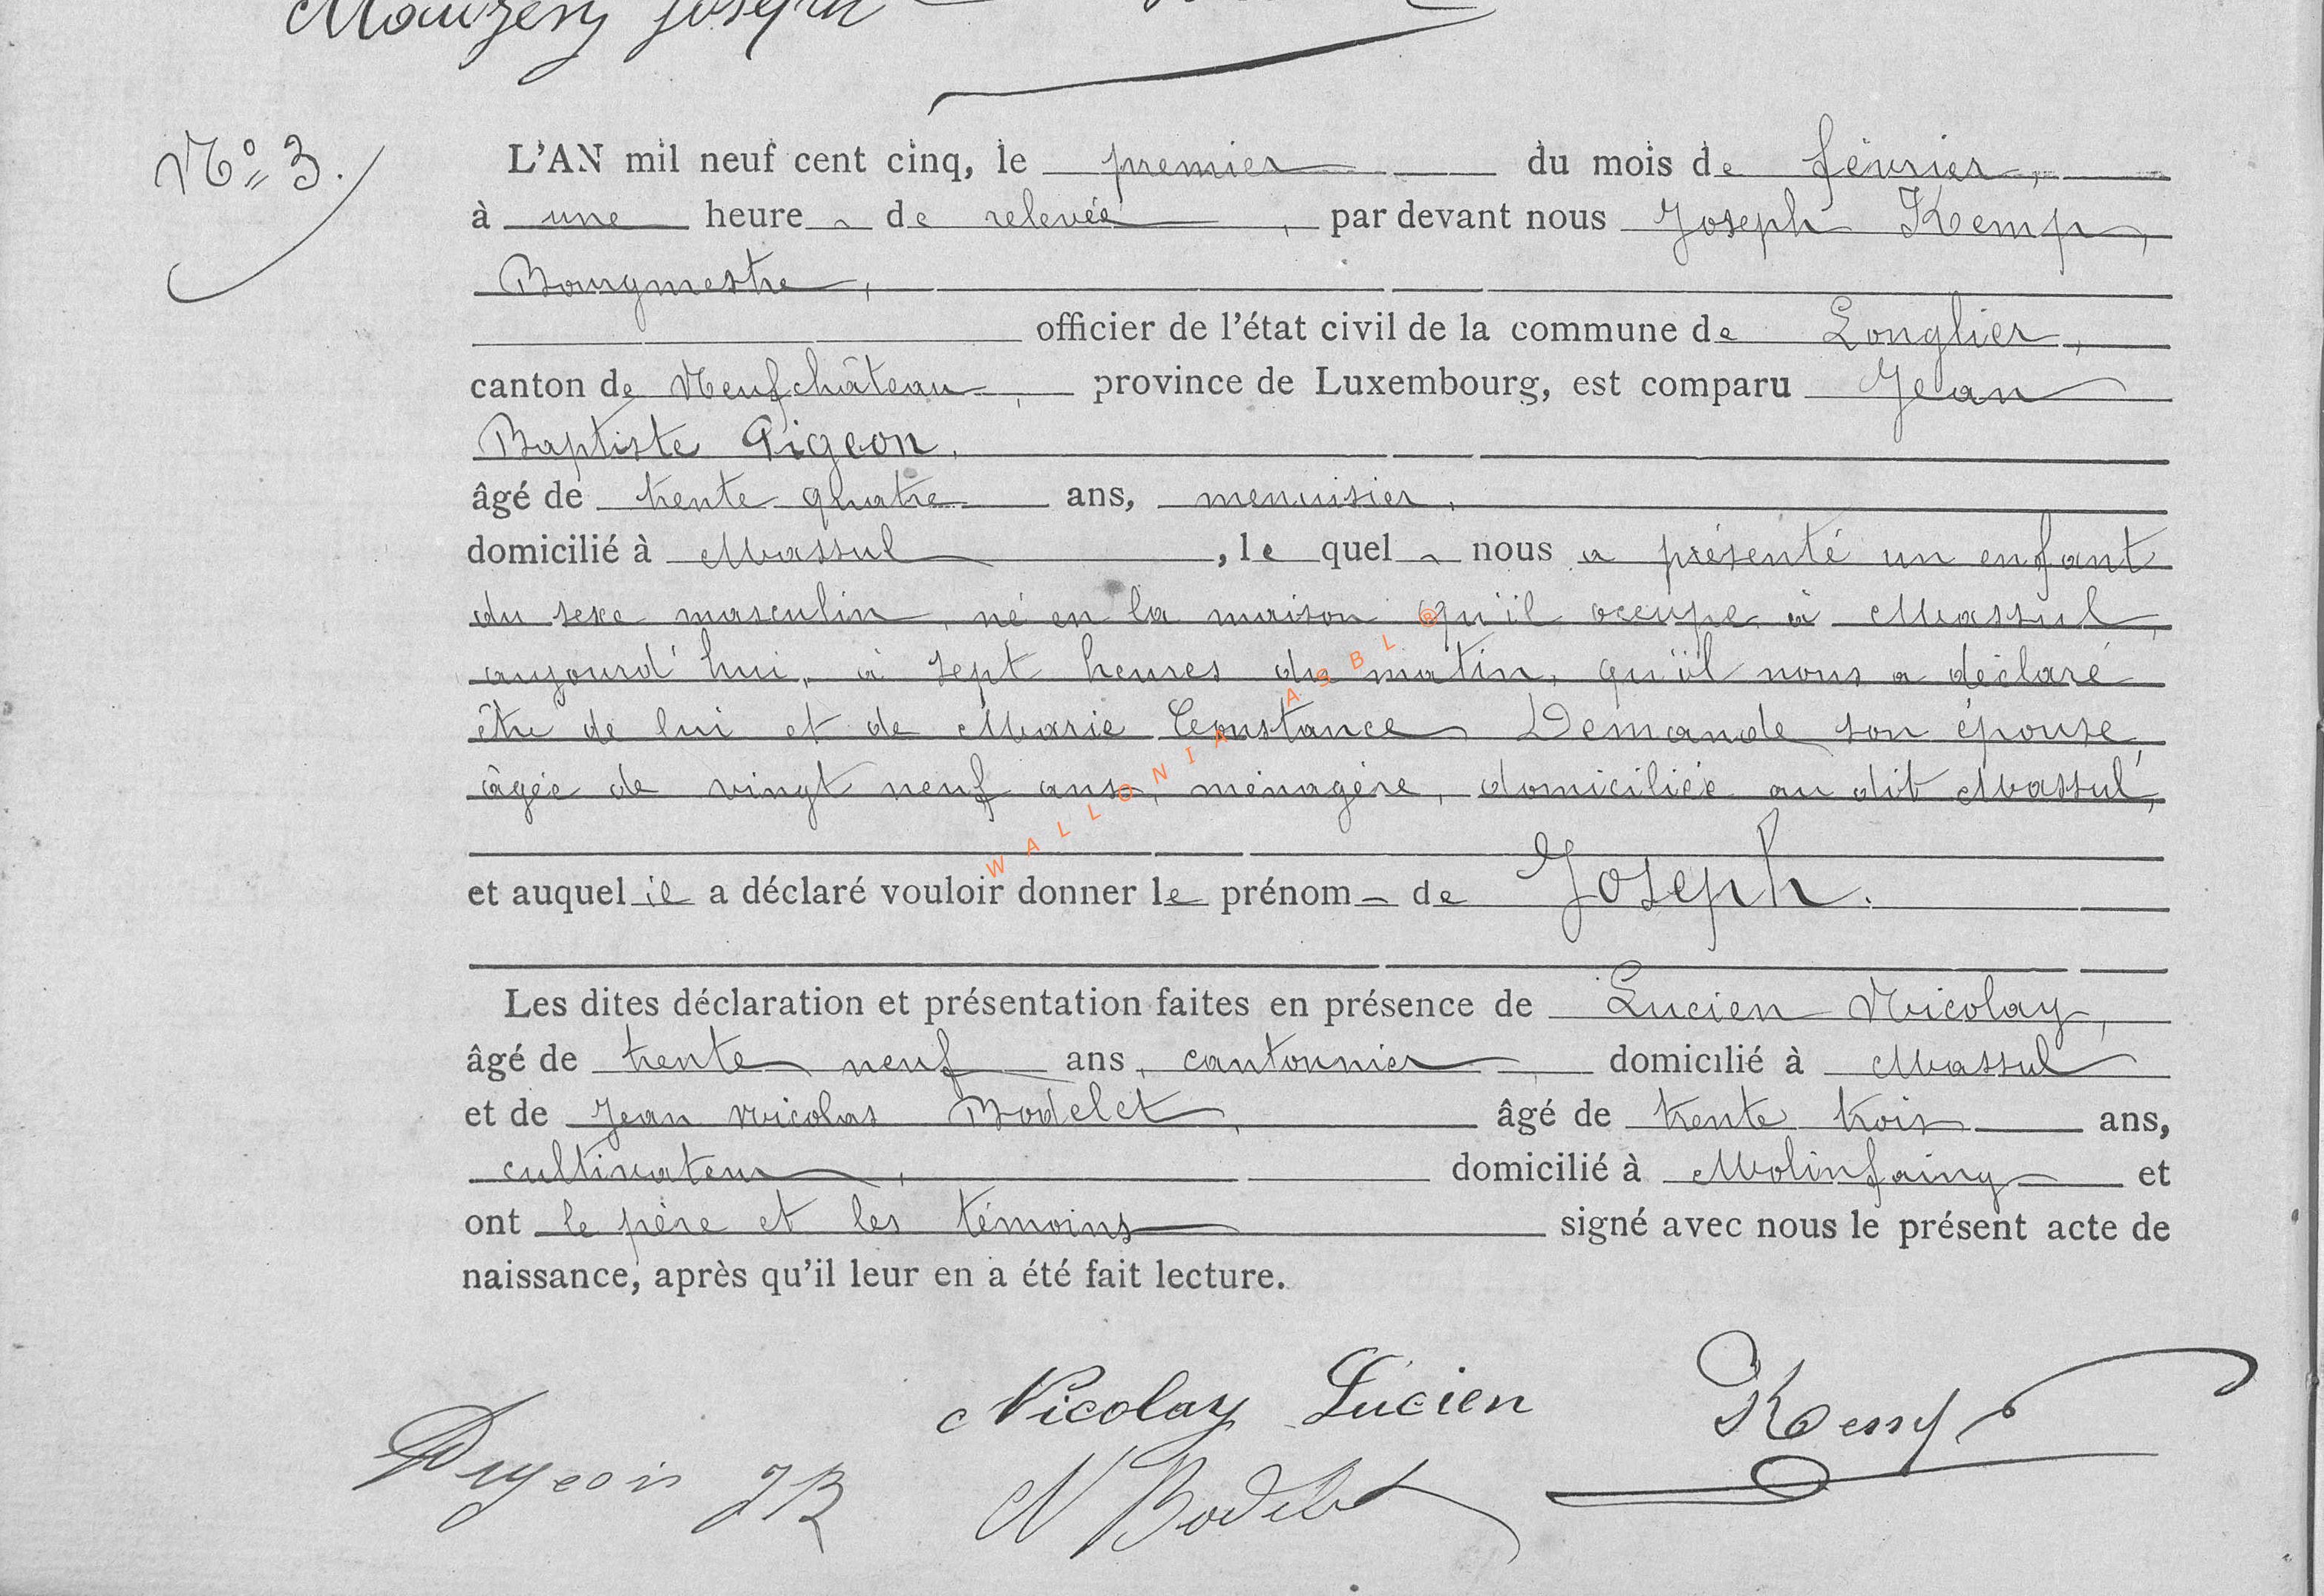 Mauzery Joseph
N° 3.
L'AN mil neuf cent cinq, le premier du mois de février,
à une heure de relevée, par devant nous Joseph Kemp,
Bourgmestre,
officier de l'état civil de la commune de Longlier,
canton de Neufchâteau, province de Luxembourg, est comparu Jean
Baptiste Pigeon,
âgé de trente quatre ans, menuisier,
domicilié à Massul, le quel nous a présenté un enfant
du sexe masculin, né en la maison qu'il occupe à Massul,
aujourd'hui, à sept heures du matin, qu'il nous a déclaré
être de lui et de Marie Constance Demande son épouse,
âgée de vingt neuf ans, ménagère, domiciliée au dit Massul,
WALLONIA ASBL ®
et auquel il a déclaré vouloir donner le prénom de Joseph.
Les dites déclaration et présentation faites en présence de Lucien Nicolay,
âgé de trente neuf ans, cantonnier, domicilié à Massul
et de Jean Nicolas Bodelet, âgé de trente trois ans,
cultivateur, domicilié à Molinfaing et
ont le père et les témoins signé avec nous le présent acte de
naissance, après qu'il leur en a été fait lecture.
Nicolay Lucien Kemp
Pigeon JB N Bodelet